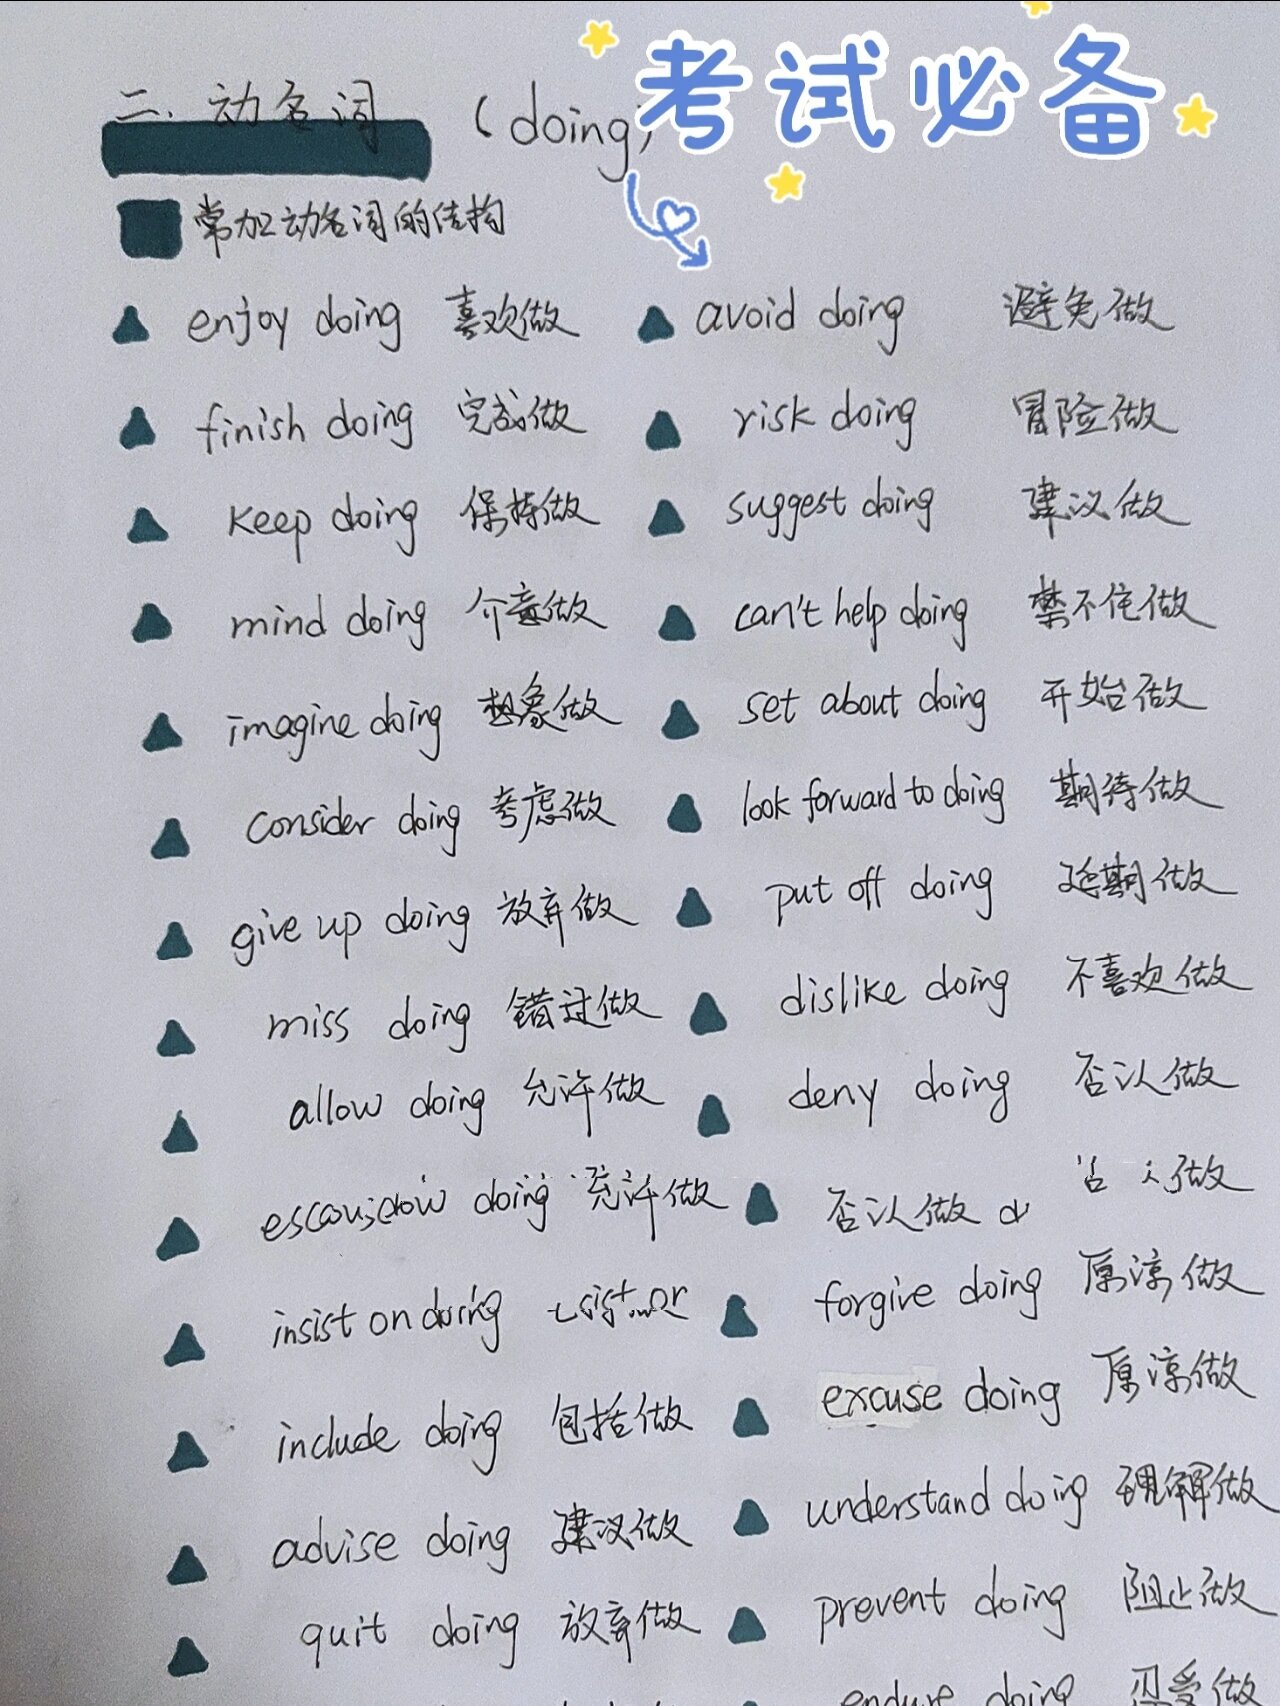 考试必备
二、动名词 (doing)
常加动名词的结构
enjoy doing 喜欢做
avoid doing 避免做
finish doing 完成做
risk doing 冒险做
keep doing 保持做
suggest doing 建议做
mind doing 介意做
can't help doing 禁不住做
imagine doing 想象做
set about doing 开始做
consider doing 考虑做
look forward to doing 期待做
give up doing 放弃做
put off doing 延期做
miss doing 错过做
dislike doing 不喜欢做
allow doing 允许做
deny doing 否认做
doing 允许做
否认做 做
insist on doing
forgive doing 原谅做
include doing 包括做
excuse doing 原谅做
advise doing 建议做
understand doing 理解做
quit doing 放弃做
prevent doing 阻止做
endure doing 忍受做